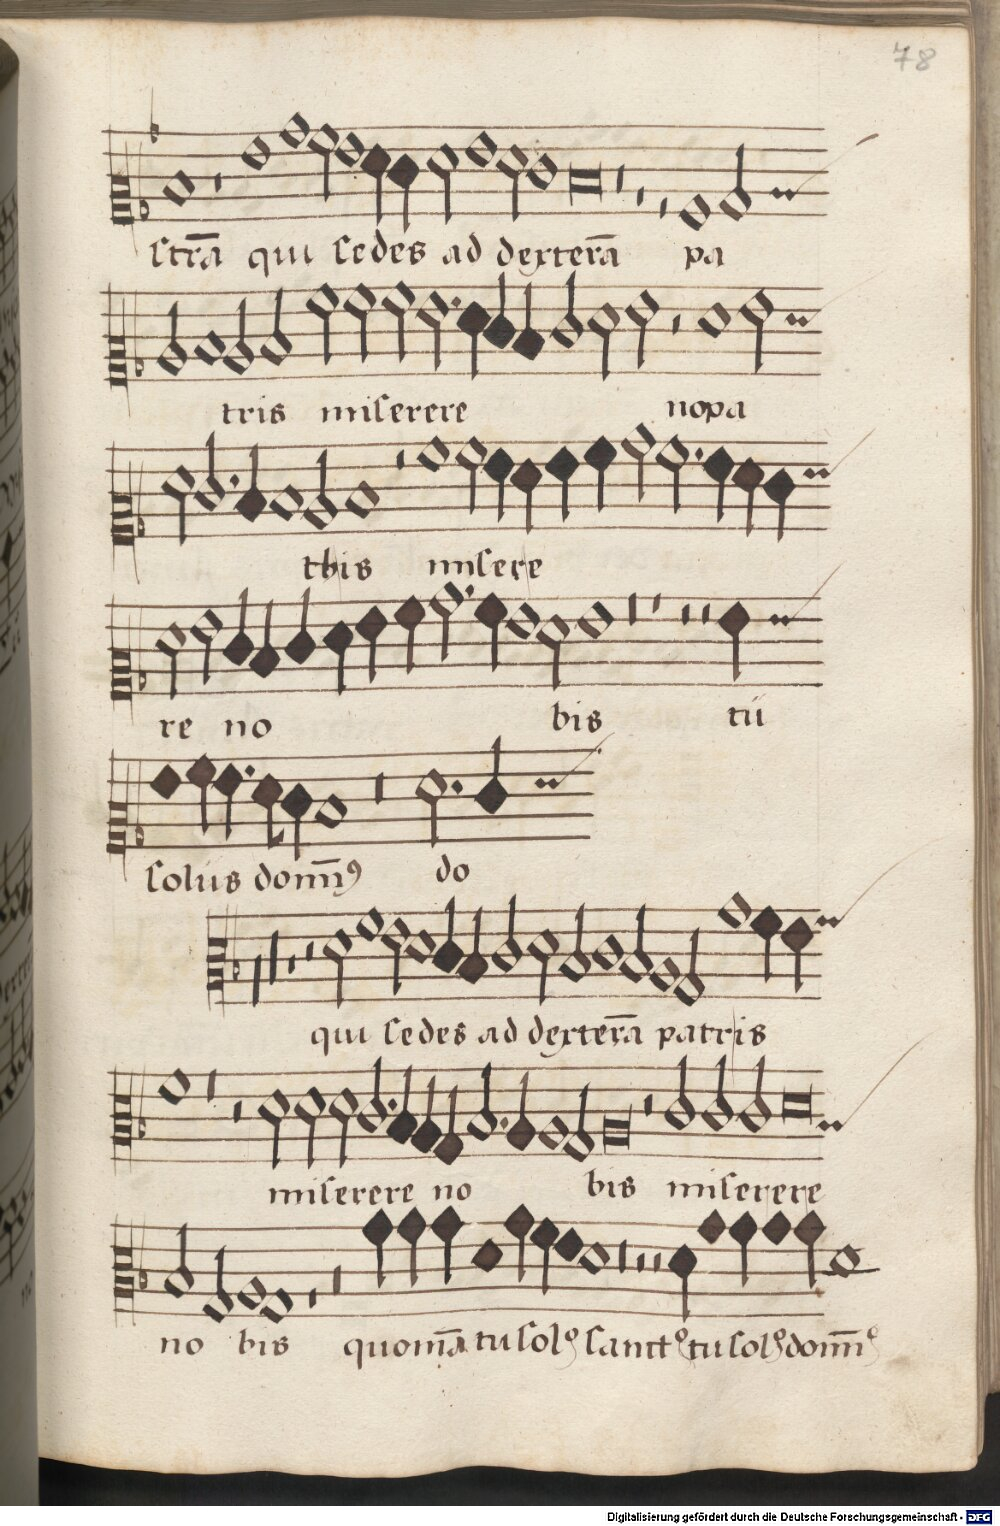 78
stra̅ qui sedes ad dextera̅ pa
tris miserere nopa
tbis misere
re no bis tu
solus domn̅ꝰ do
qui sedes ad dextera̅ patris
miserere no bis miserere
no bis quonia̅ tu solꝰ sanctꝰ tu solꝰ domn̅ꝰ
Digitalisierung gefördert durch die Deutsche Forschungsgemeinschaft - DFG